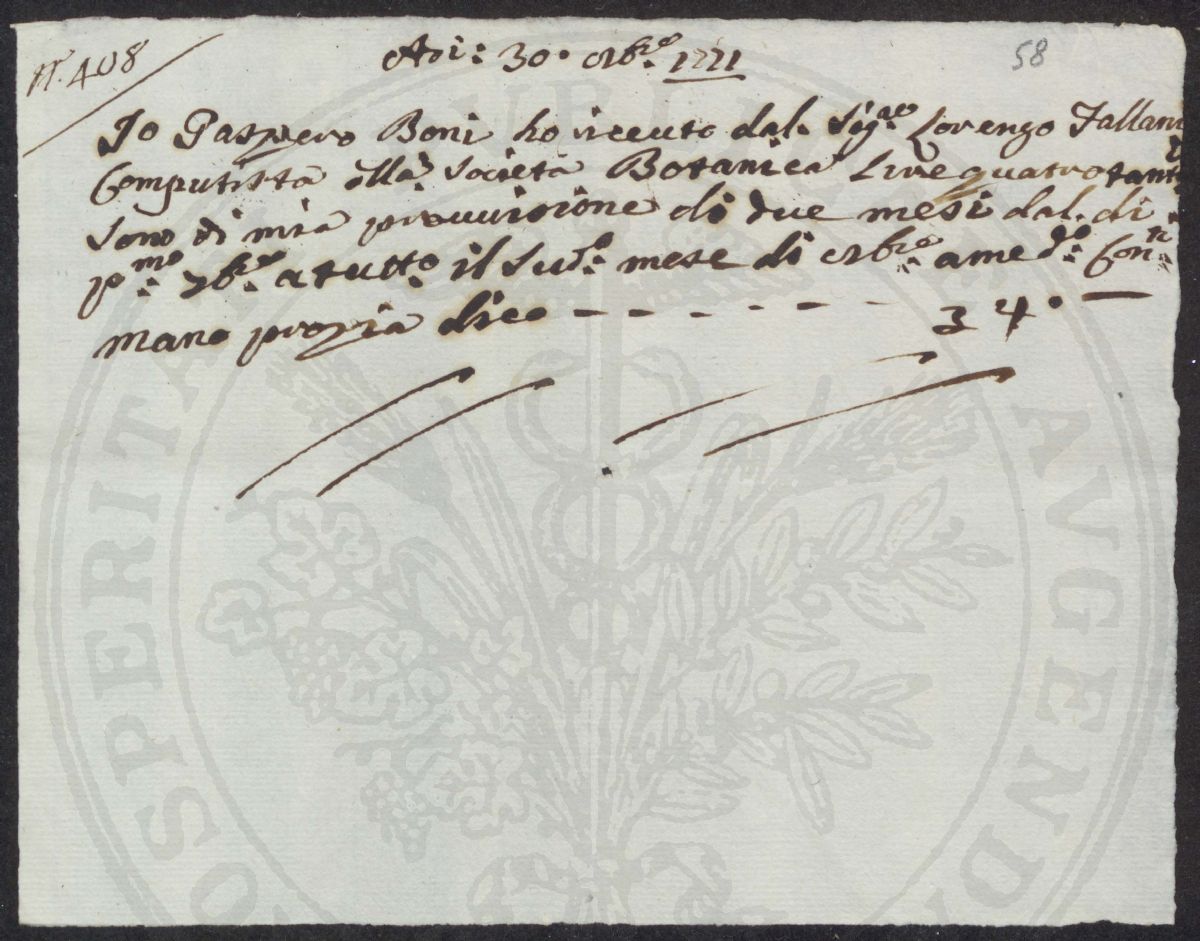 N.º 408
Adi: 30. 8bre. 1771
58
Io Gaspero Boni ho riceuto dal. Sig.re Lorenzo Fallani
Computista ella Società Botanica Lire quatro
sono di mia provvisione di due mesi dal. di
p.mo 7b.re a tutto il Sud.o mese di 8b.re a me d.o Con.ti
mano propia dico - - - - - - 34.
PROSPERITATI PVBLICAE AVGENDAE